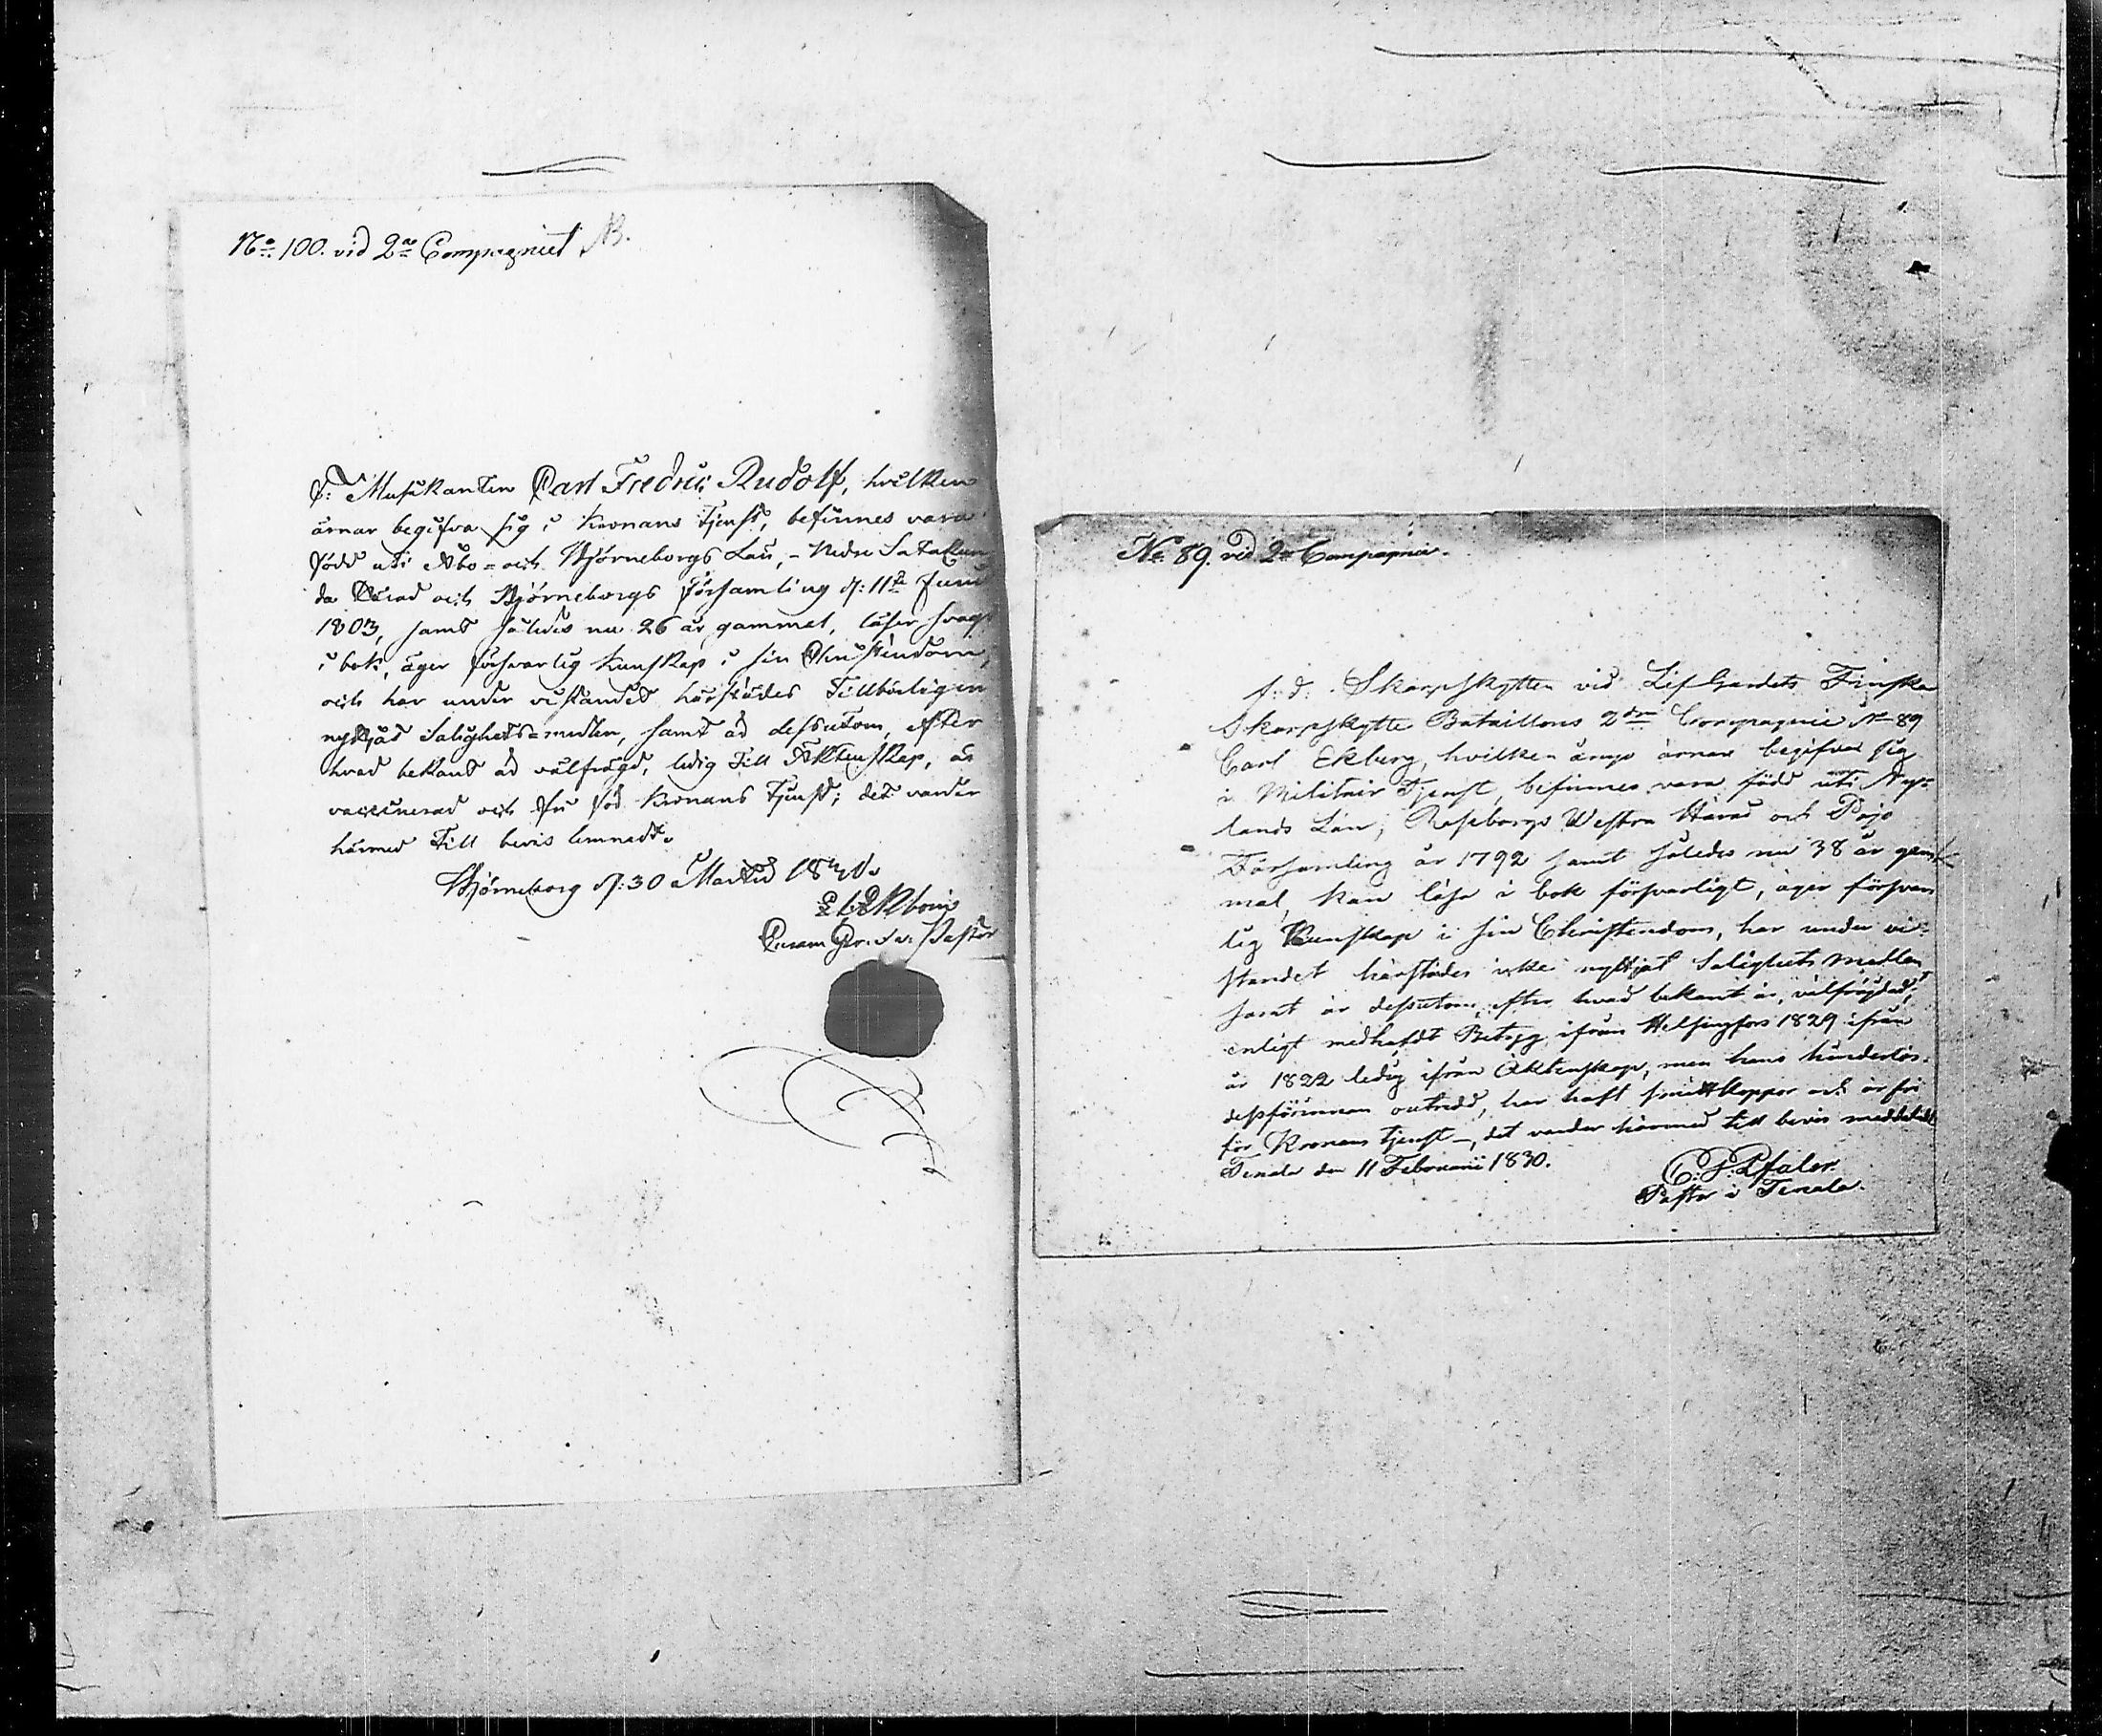 No 100. vid 2a Compagniet NB.
F: Musikanten Carl Fredric Rudolf, hvilken
ärnar begifva sig i Kronans tjenst, befinnes vara
född uti Åbo= och Björneborgs Län, - Nedre Satakun
da Härad och Björneborgs församling d: 11te Junii
1803, samt således nu 26 år gammal, läser svagt
i bok, äger försvarlig kunskap i sin Christendom,
och har under vistandet härstädes tillbörligen
nyttjat Salighets=medlen, samt är dessutom, efter
hvad bekant är välfrägd, ledig till Äktenskap, är
vaccinerad och fri för Kronans tjenst; det varder
härmed till bevis lemnadt.
Björneborg d: 30 Martii 1830.
Pastor
No 89. vid 2a Compagnie.
f: d: Skarpskytten vid Lif Gardets Finska
Skarpskytte Bataillons 2dra Compagnie No 89
Carl Ekberg, hvilken ärnar begifva sig
i Militair Tjenst, befinnes vara född uti Ny=
lands Län, Raseborgs Westra Härad och Pojo
Församling år 1792 samt således nu 38 år gam=
mal, kan läsa i bok försvarligt, äger försvar
lig Kunskap i sin Christendom, har under vi=
standet härstädes icke nyttjat Salighets medlen
samt är dessutom, efter hvad bekant är, välfrägdad,
enligt medhafdt Betyg ifrån Helsingfors 1829 ifrån
år 1822 ledig ifrån Äktenskap, men hans hinderlös=
dessförinnan outredd, har haft smittkoppor och är fri
för Kronans tjenst -, det varder härmed till bevis meddeladt
Tenala den 11 Februarii 1830.
C: P: Pfaler.
Pastor i Tenala.